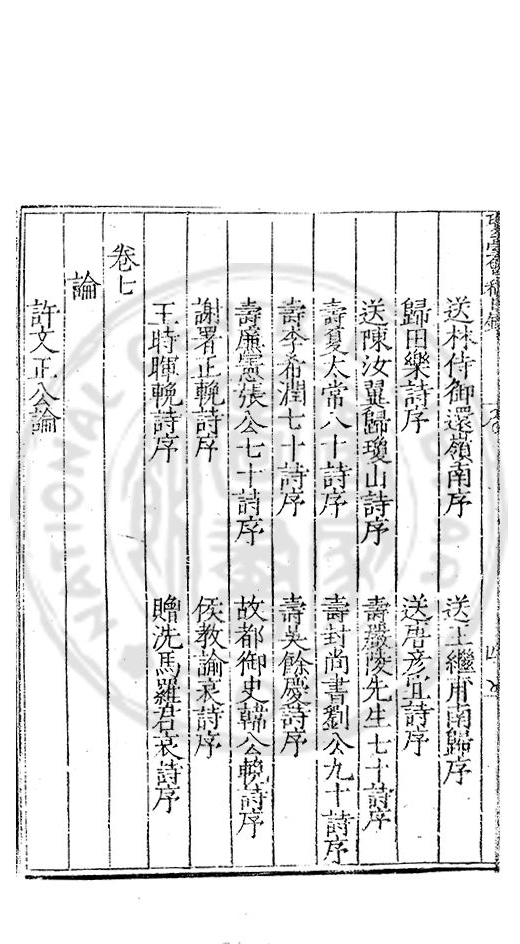 送林侍御還嶺南序　送王繼甫南歸序
歸田樂詩序　送唐彥宜詩序
送陳汝翼歸瓊山詩序　壽嚴陵先生七十詩序
壽夏太常八十詩序　壽封尚書劉公九十詩序
壽李希潤七十詩序　壽吳餘慶詩序
壽廉憲張公七十詩序　故都御史韓公輓詩序
謝署正輓詩序　侯教諭哀詩序
王時暉輓詩序　贈洗馬羅君哀詩序
卷七
論
許文正公論
NATIONAL CENTRAL